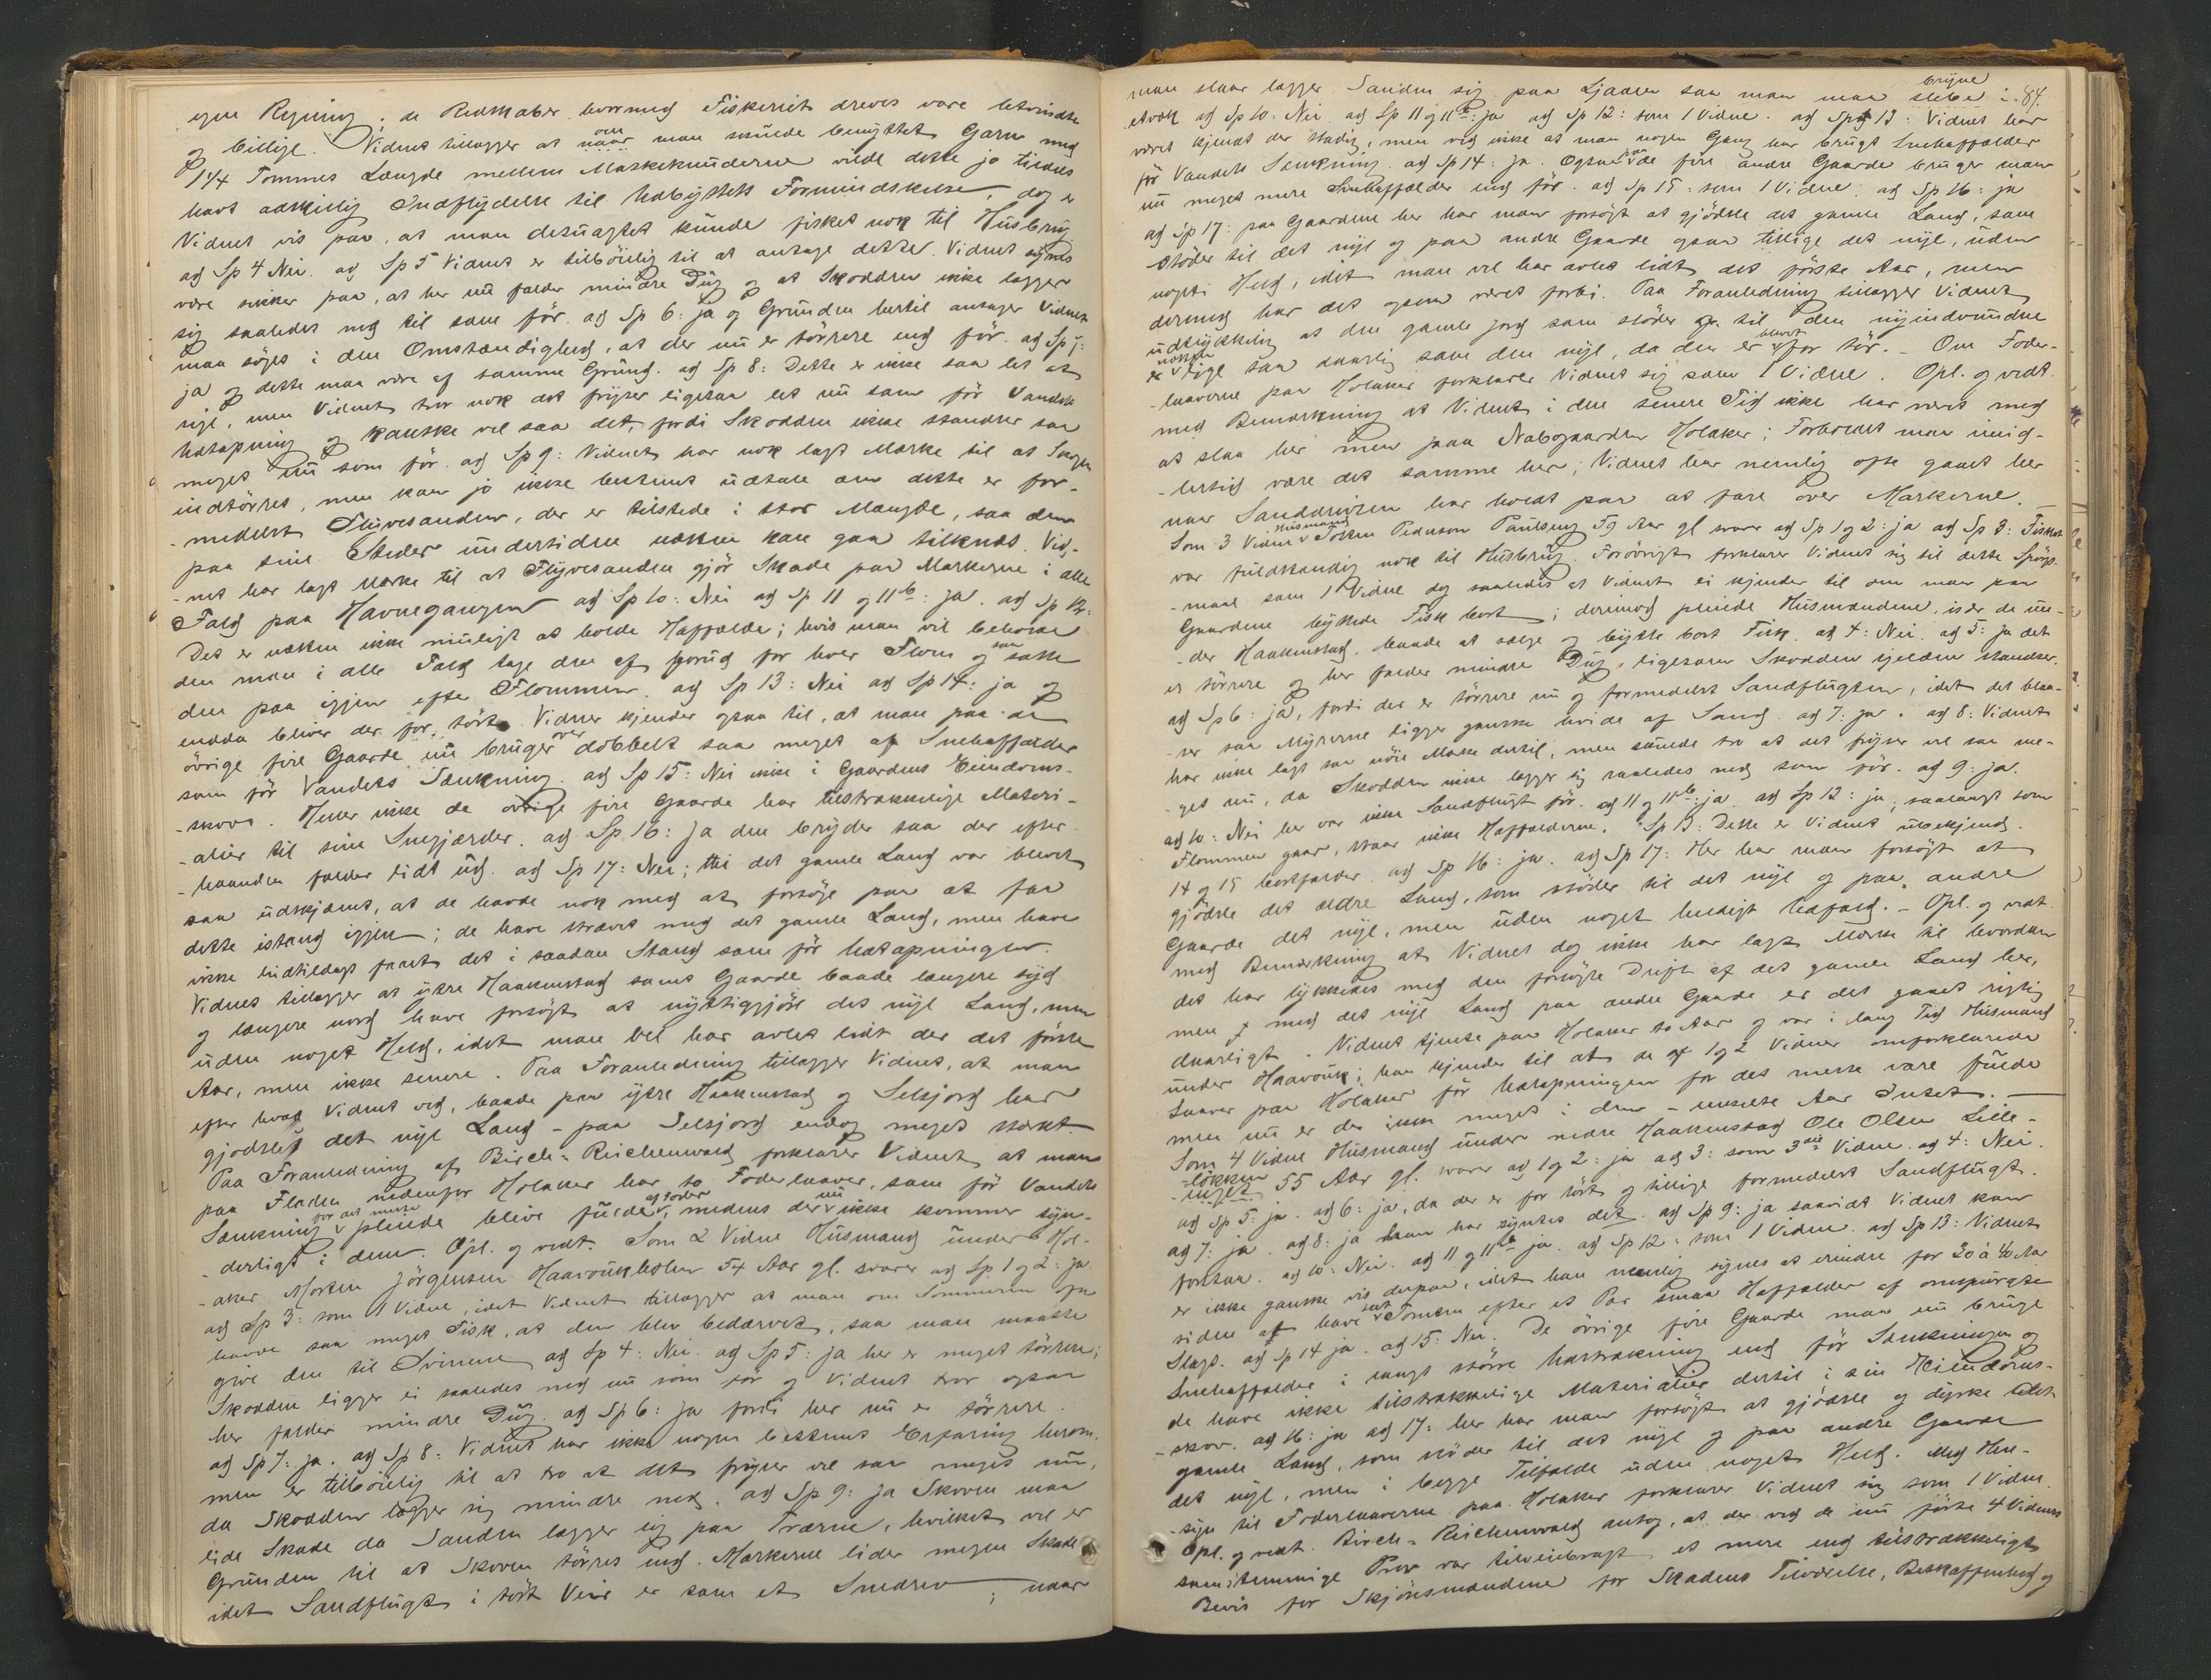 egen Regning; de Redskaber hvormed Fiskeriet dreves vare letvindte
og billige. Vidnet tillægger at naar om man skulde benyttet Garn med
1 1/4 Tommes Længde mellem Maskeknuderne vilde dette jo tildels
havt adskillig Indflydelse til Udbyttets Formindskelse, dog er
Vidnet vis paa, at man desuagtet kunde fisket nok til Husbrug
ad Sp 4 Nei. ad Sp 5 Vidnet er tilbøielig til at antage dette. Vidnet synes
være sikker paa, at her nu falder mindre Dug og at Skodden ikke lægger
sig saaledes ned til som før. ad Sp 6: ja og Grunden hertil antager Vidnet
maa søges i den Omstændighed, at der nu er tørrere end før. ad Sp 7:
ja og dette maa være af samme Grund. ad Sp 8: Dette er ikke saa let at
sige, men Vidnet tror nok det fryser ligesaa let nu som før Vandets
Uttapning og kanske vel saa det, fordi Skodden ikke standser saa
meget nu som før. ad Sp 9: Vidnet har nok lagt Mærke til at Skogen
indtørres, men kan jo ikke bestemt udtale om dette er for-
-medelst Flyvesanden, der er tilstede i stor Mængde, saa den
paa sine Steder undertiden næsten kan gaa tilknæs. Vid-
-net har lagt Mærke til at Flyvesanden gjør Skade paa Markerne i alle
Fald paa Havnegangen ad Sp 10: Nei ad Sp 11 og 11b: ja. ad Sp 12:
Det er næsten ikke muligt at holde Havfælde; hvis man vil beholde
den maa i alle Fald tage den af forud for hver Flom og saa sætte
den paa igjen efter Flommen. ad Sp 13: Nei ad Sp 14: ja og
endda bliver der for tørt. Vidnet kjender ogsaa til, at man paa de
øvrige fire Gaarde nu bruger over dobbelt saa meget af Snehavfælder
som før Vandets Sænkning. ad Sp 15: Nei ikke i Gaardens Eiendoms-
-skove. Heller ikke de øvrige fire Gaarde har tilstrækkelige Materi-
-alier til sine Snegjærder. ad Sp 16: ja den bryder saa der efter
-haanden falder lidt ud. ad Sp 17: Nei; thi det gamle Land var blevet
saa udskjæmt, at de havde nok med at forsøge paa at faa
dette istand igjen; de have strævet med det gamle Land, men have
ikke hidtildags faaet det i saadan Stand som før Uttapningen.
Vidnet tillægger at ytre Haakenstad samt Gaarde baade længere syd
og længere nord have forsøgt at nyttiggjøre det nye Land, men
uden noget Held, idet man vel har avlet lidt der det første
Aar, men ikke senere. Paa Foranledning tillægger Vidnet, at man
efter hvad Vidnet ved, baade paa ytre Haakenstad og Selsjord har
gjødslet det nye Land - paa Selsjord endog meget stærkt
Paa Foranledning af Birch-Reichenwald forklarer Vidnet at man
paa Fladen nedenfor Holaker har to Foderlaaver, som før Vandets
Sænkning for det meste pleiede blive fulde af Foder, medens der nu ikke kommer syn-
-derligt i dem. Opl. og vedt. Som 2 Vidne Husmand under Hol-
-aker Morten Jørgensen Haavoukholen 54 Aar gl. svarer ad Sp 1 og 2: ja
ad Sp 3: som 1 Vidne, idet Vidnet tillægger at man om Sommeren ofte
havde saa meget Fisk, at den blev bedærvet, saa man maatte
give den til Svinene ad Sp 4: Nei. ad Sp 5: ja her er meget tørrere;
Skodden ligger ei saaledes ned nu som før og Vidnet tror ogsaa
her falder mindre Dug. ad Sp 6: ja fordi her nu er tørrere.
ad Sp 7: ja. ad Sp 8: Vidnet har ikke nogen bestemt Erfaring herom,
men er tilbøielig til at tro at det fryser vel saa meget nu,
da Skodden lægger sig mindre ned. ad Sp 9: ja Skoven maa
lide Skade da Sanden lægger sig paa Trærne, hvilket vel er
Grunden til at Skoven tørres ud. Markerne lider megen Skade
idet Sandflugt i tørt Veir er som et Snedrev; naar
man slaar lægger Sanden sig paa Ljaaen saa man maa slibe bryne i 84.
etvæk ad Sp 10: Nei ad Sp 11 og 11b: ja ad Sp 12: som 1 Vidne. ad Sp 13: Vidnet har
været kjendt der stadig, men ved ikke at man nogen Gang har brugt Snehavfælder
før Vandets Sænkning. ad Sp 14: ja. Ogsaa paa de fire andre Gaarde bruger man
nu meget mere Snehavfælder end før. ad Sp 15: som 1 Vidne. ad Sp 16: ja
ad Sp 17: paa Gaardene her har man forsøgt at gjødsle det gamle Land, som
støder til det nye og paa andre Gaarde ogsaa tillige det nye, uden
noget Held, idet man vel har avlet lidt det første Aar, men
dermed har det ogsaa været forbi. Paa Foranledning tillægger Vidnet
udtrykkelig at den gamle jord som støder til den nyindvundne
er næsten lige saa daarlig som den nye, da den er blevet for tør. - Om Foder-
-laaverne paa Holaker forklarer Vidnet sig som 1 Vidne. Opl. og vedt.
med Bemærkning at Vidnet i den senere Tid ikke har været med
at slaa her men paa Nabogaarden Holaker; Forholdet maa imid-
-lertid være det samme her; Vidnet har nemlig ofte gaaet her
naar Sanddrivsen har holdt paa at fare over Markerne. -
Som 3 Vidne Husmand Torsten Pedersen Paulseng 59 Aar gl svarer ad Sp 1 og 2: ja ad Sp 3: Fisket
var fuldstændig nok til Husbrug. Forøvrigt forklarer Vidnet sig til dette Spørgs-
-maal som 1 Vidne dog saaledes at Vidnet ei kjender til om man paa
Gaardene byttede Fisk bort; derimod pleiede Husmændene, især de un-
-der Haakenstad, baade at sælge og bytte bort Fisk. ad 4: Nei. ad 5: ja det
er tørrere og her falder mindre Dug, ligesom Skodden sjelden standser.
ad Sp 6: ja, fordi der er tørrere nu og formedelst Sandflugten, idet det blaa-
-ser saa Myrerne ligger ganske hvide af Sand. ad 7: ja. ad 8: Vidnet
har ikke lagt saa nøie Mærke dertil, men skulde tro at det fryser vel saa me-
-get nu, da Skodden ikke lægger sig saaledes ned som før. ad 9: ja.
ad 10: Nei her var ikke Sandflugt før. ad 11 og 11b: ja. ad Sp 12: ja, saalangt som
Flommen gaar, staar ikke Havfælderne. Sp 13: Dette er Vidnet ubekjendt.
14 og 15 bortfalder ad Sp 16: ja. ad Sp 17: Her har man forsøgt at
gjødsle det ældre Land, som støder til det nye og paa andre
Gaarde det nye, men uden noget heldigt Udfald. - Opl. og vedt.
med Bemærkning at Vidnet dog ikke har lagt Mærke til hvordan
det har lykkedes med den forsøgte Drift af det gamle Land her,
men med det nye Land paa andre Gaarde er det gaaet rigtig
daarligt. Vidnet tjente paa Holaker to Aar og var i lang Tid Husmand
under Haavouk; han kjender til at de af 1 og 2 Vidner omforklarede
Laaver paa Holaker før Uttapningen for det meste vare fulde
men nu er der ikke meget i dem - enkelte Aar Intet. -
Som 4 Vidne Husmand under nedre Haakenstad Ole Olsen Lille-
-løkken 55 Aar gl. svarer ad 1 og 2: ja ad 3: som 3die Vidne. ad 4: Nei.
ad Sp 5: ja. ad 6: ja, da der er for tørt og tillige formedelst Sandflugt.
ad 7: ja. ad 8: ja han har syntes det. ad Sp 9: ja saavidt Vidnet kan
forstaa. ad 10: Nei. ad 11 og 11b ja. ad Sp 12: som 1 Vidne. ad Sp 13: Vidnet
er ikke ganske vis derpaa, idet han nemlig synes at erindre for 30 à 40 Aar
siden at have seet Tomten efter et Par smaa Havfælder af
Slags. ad Sp 14 ja. ad 15: Nei. De øvrige fire Gaarde maa nu bruge
Snehavfælder i langt større Udstrækning end før Sænkningen og
de have ikke tilstrækkelige Materialier dertil i sin Eiendoms-
-skov. ad 16: ja ad 17: her har man forsøgt at gjødsle og dyrke det
gamle Land, som støder til det nye og paa andre Gaarde
det nye, men i begge Tilfælde uden noget Held. Med Hen-
-syn til Foderlaaverne paa Holaker forklarer Vidnet sig som 1 Vidne.
Opl. og vedt. Birch-Reichenwald antog, at der ved de nu førte 4 Vidners
samstemmige Prov var tilveiebragt et mere end tilstrækkeligt
Bevis for Skjønsmændene for Skadens Tilværelse, Beskaffenhed og